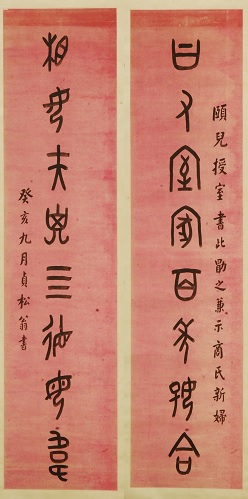 曰又室家百年好合
頤兒授室書此勖之兼示商氏新婦
相女夫子三從母韋
癸亥九月貞松翁書